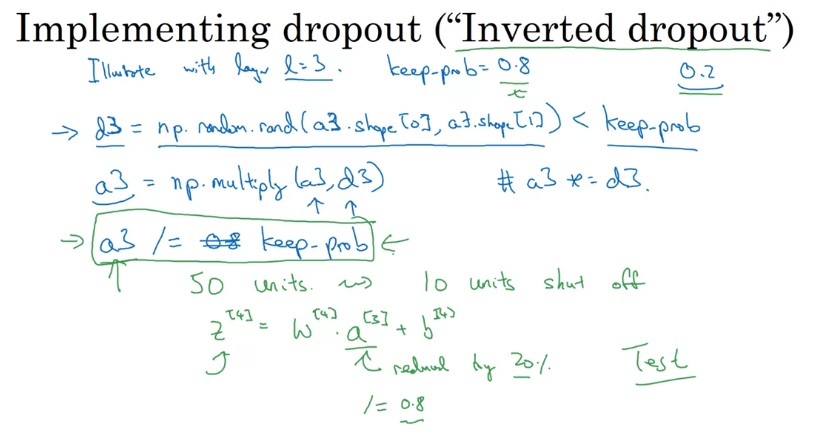 Implementing dropout (“Inverted dropout”)
Illustrate with layer l=3. keep-prob= 0.8 0.2
→ d3 = np.random.rand(a3.shape[0], a3.shape[1]) < keep-prob
a3 = np.multiply(a3, d3) # a3 *= d3.
→ a3 /= 0.8 keep-prob ←
50 units. ⇝ 10 units shut off
z^[4] = W^[4] . a^[3] + b^[4]
reduced by 20%. Test
/= 0.8